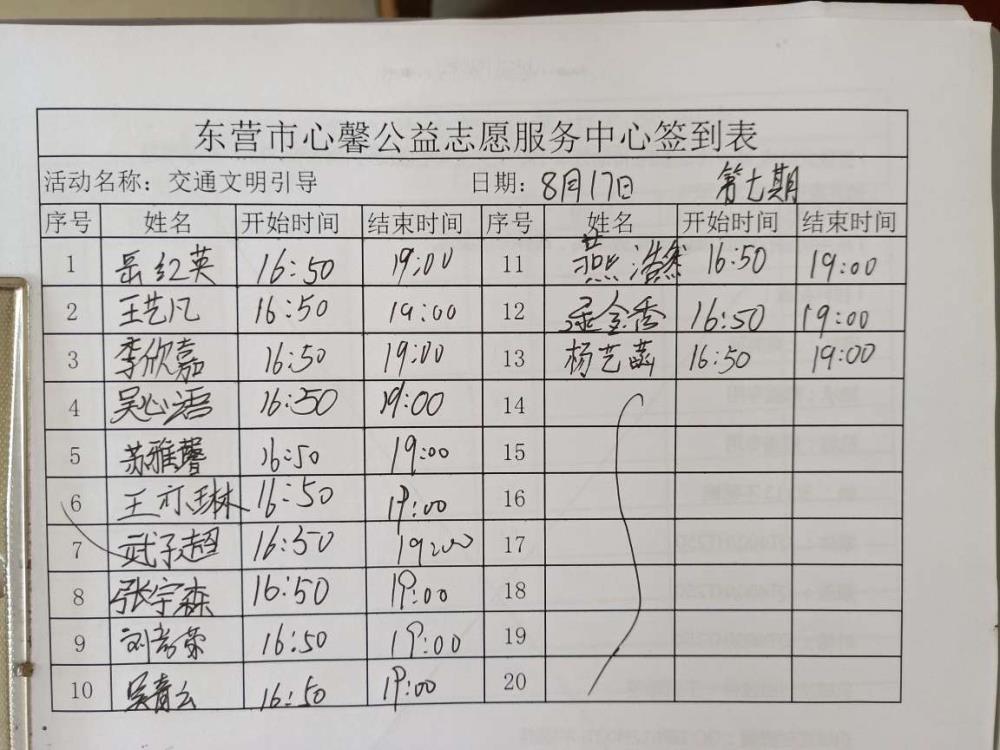 东营市心馨公益志愿服务中心签到表
活动名称：交通文明引导 日期：8月17日 第七期
序号 姓名 开始时间 结束时间 序号 姓名 开始时间 结束时间
1 岳红英 16:50 19:00 11 燕浩然 16:50 19:00
2 王艺凡 16:50 19:00 12 金秀 16:50 19:00
3 李欣嘉 16:50 19:00 13 杨艺菡 16:50 19:00
4 吴心语 16:50 19:00 14
5 苏雅馨 16:50 19:00 15
6 王亦琳 16:50 19:00 16
7 武子超 16:50 19:00 17
8 张宇森 16:50 19:00 18
9 刘荣 16:50 19:00 19
10 吴青云 16:50 19:00 20